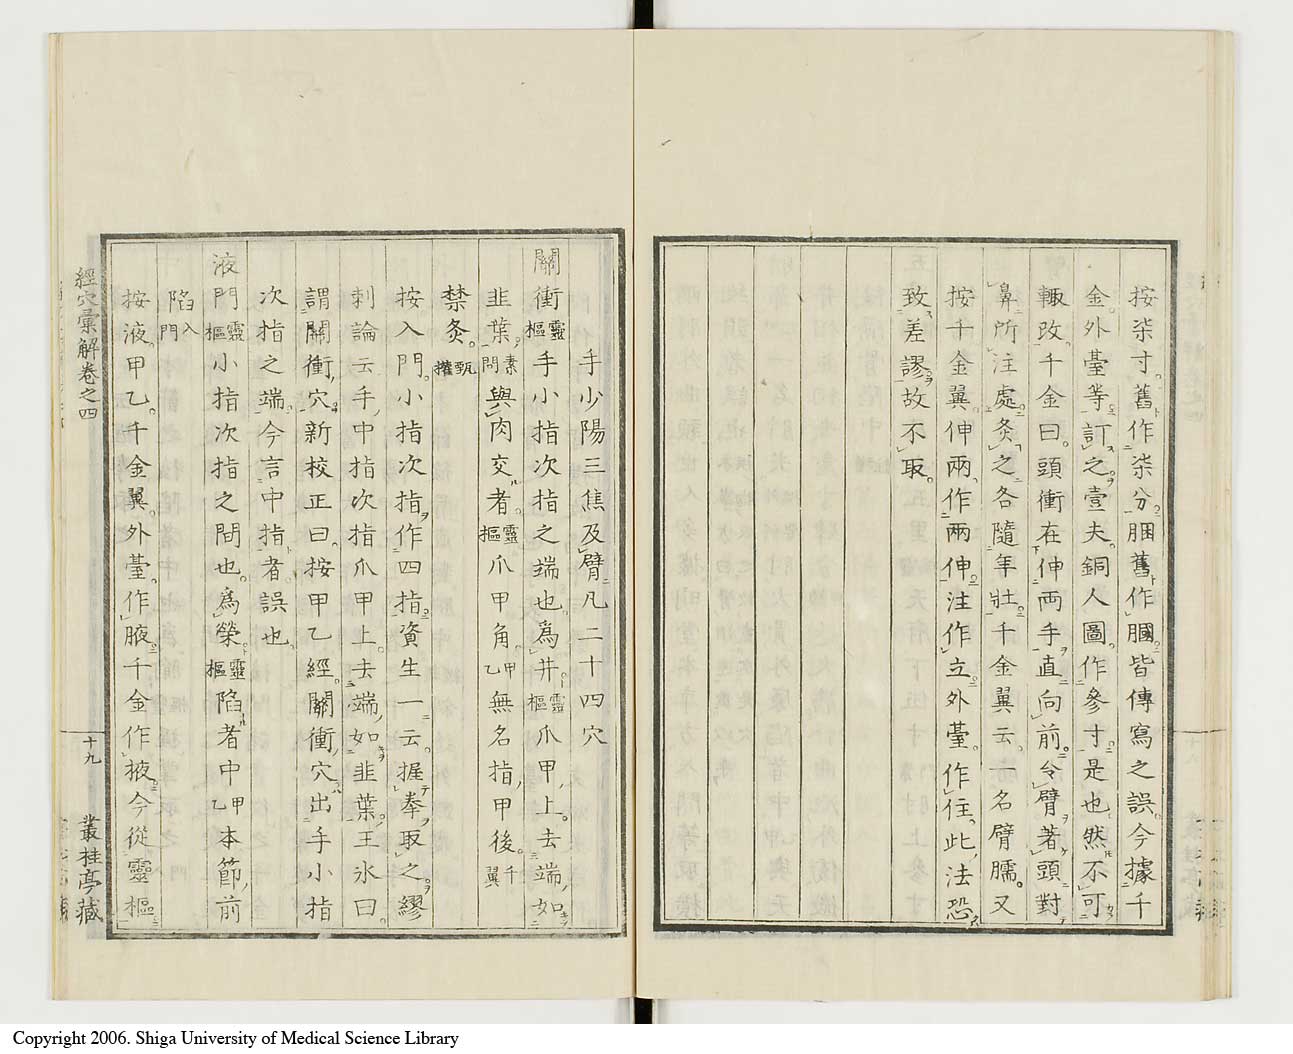 按柒寸舊作柒分胭舊作膕皆傳寫之誤今據千
金外臺等訂之壹夫銅人圖作參寸是也然不可
輙改千金曰頭衝在伸兩手直向前令臂著頭對
鼻所注處灸之各隨年壯千金翼云一名臂臑又
按千金翼伸兩作兩伸注作立外臺作住此法恐
致差謬故不取
手少陽三焦及臂凡二十四穴
關衝靈樞手小指次指之端也爲井靈樞爪甲上去端如
韭葉素問與肉交者靈樞爪甲角甲乙無名指甲後千翼
禁灸甄權
按入門小指次指作四指資生一云握拳取之繆
刺論云手中指次指爪甲上去端如韭葉王氷曰
謂關衝穴新校正曰按甲乙經關衝穴出手小指
次指之端今言中指者誤也
液門靈樞小指次指之間也爲榮靈樞陷者中甲乙本節前
陷入門
按液甲乙千金翼外臺作腋千金作掖今從靈樞
經穴彙解卷之四
十九
叢桂亭藏
Copyright 2006. Shiga University of Medical Science Library